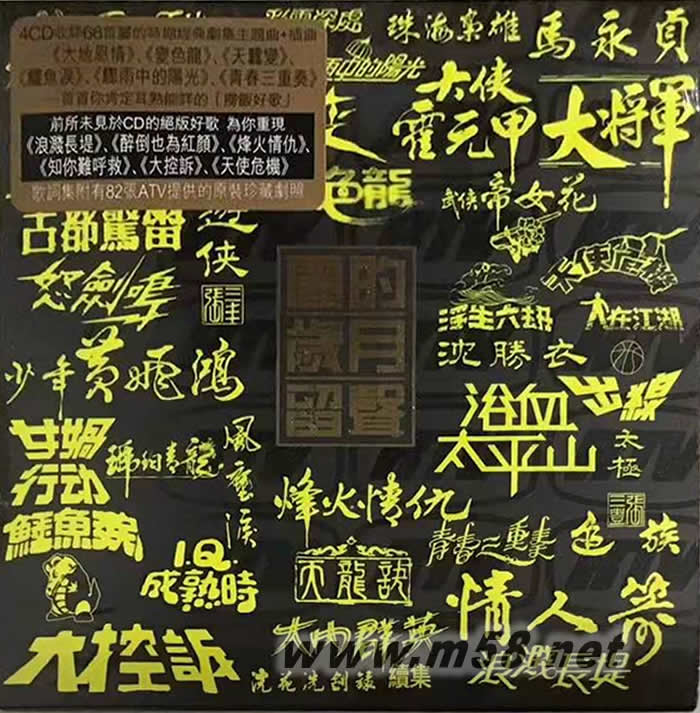 4CD收錄68首膾炙的時期經典劇集主題曲・插曲
《大地恩情》、《變色龍》、《天蠶變》、
《鱷魚淚》、《驟雨中的陽光》、《青春三重奏》
一首首你肯定耳熟能詳的「撈飯好歌」
前所未見於CD的絕版好歌 為你重現
《浪濺長堤》、《醉倒也為紅顏》、《烽火情仇》、
《知你難呼救》、《大控訴》、《天使危機》
歌詞集附有82張ATV提供的原裝珍藏劇照
珠海梟雄
馬永貞
雨中的陽光
大俠
霍元甲
大將軍
色龍
武俠帝女花
古都驚雷
遊俠
天使危機
怒劍鳴
張三丰
浮生六劫
人在江湖
麗的
歲月
留聲
沈勝衣
少年黃飛鴻
浴血
太平山
出線
太極
張三豐
女媧
行动
琊蛔青龍
風塵淚
烽火情仇
鱷魚淚
青春三重奏
追族
I.Q.
成熟時
天龍訣
情人箭
大控訴
大內群英
續集
浣花洗劍錄
浪濺長堤
www.m58.net